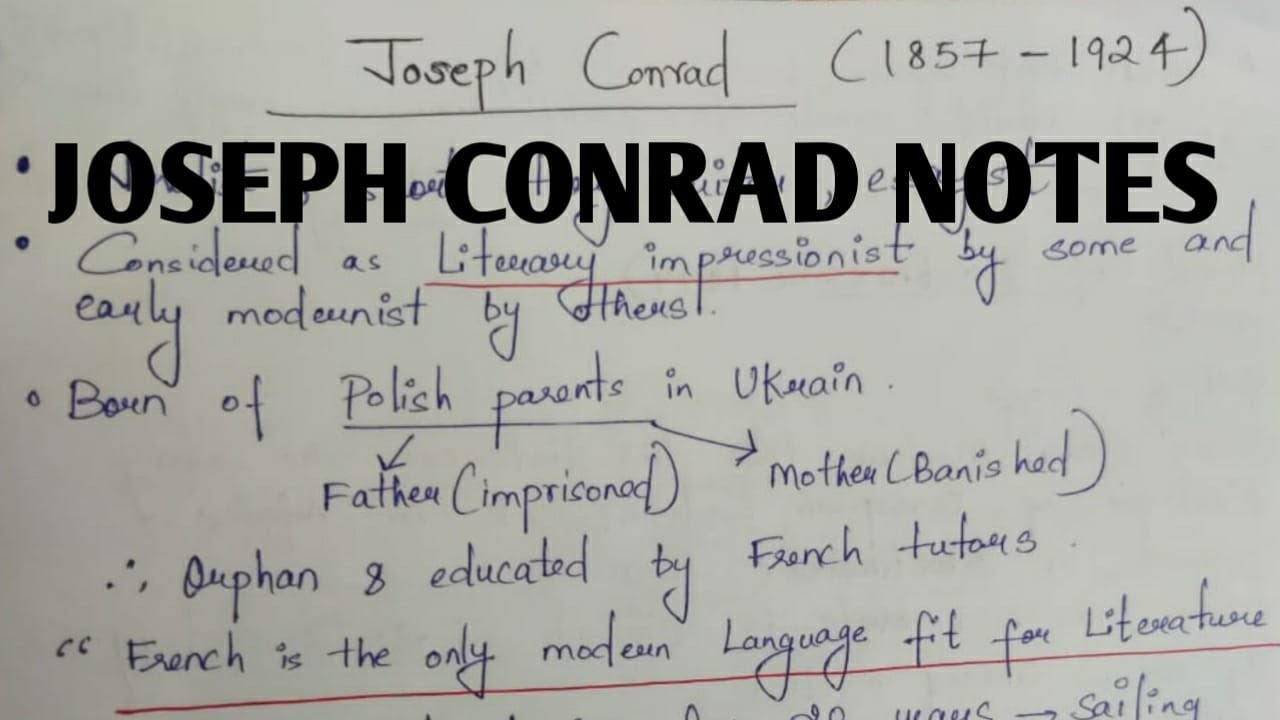 Joseph Conrad (1857 - 1924)
JOSEPH CONRAD NOTES
• Considered as Literary impressionist by some and
early modernist by others.
• Born of Polish parents in Ukrain.
Father (imprisoned) Mother (Banished)
∴ Orphan & educated by French tutors.
“ French is the only modern Language fit for Literature
years → sailing